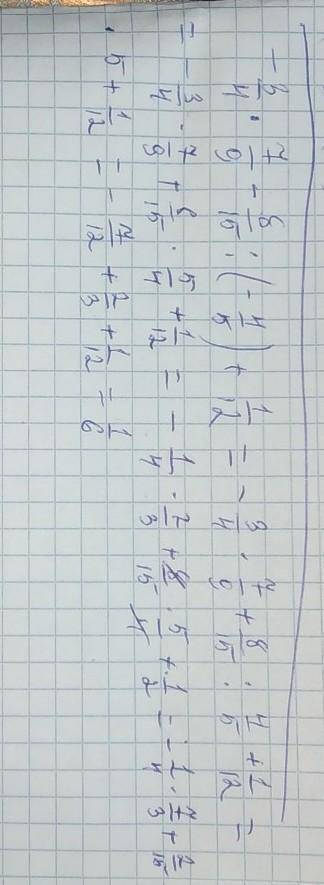 -3/4 · 7/9 - 8/15 : (-4/5) + 1/12 = -3/4 · 7/9 + 8/15 : 4/5 + 1/12 =
= -3/4 · 7/9 + 8/15 · 5/4 + 1/12 = -1/4 · 7/3 + 8/15 · 5/4 + 1/2 = -1/4 · 7/3 + 2/15
· 5 + 1/12 = -7/12 + 2/3 + 1/12 = 1/6